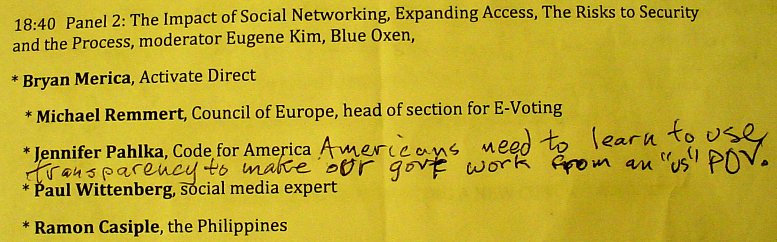 18:40 Panel 2: The Impact of Social Networking, Expanding Access, The Risks to Security
and the Process, moderator Eugene Kim, Blue Oxen,
* Bryan Merica, Activate Direct
* Michael Remmert, Council of Europe, head of section for E-Voting
* Jennifer Pahlka, Code for America Americans need to learn to use
transparency to make our govt work from an "us" POV.
* Paul Wittenberg, social media expert
* Ramon Casiple, the Philippines